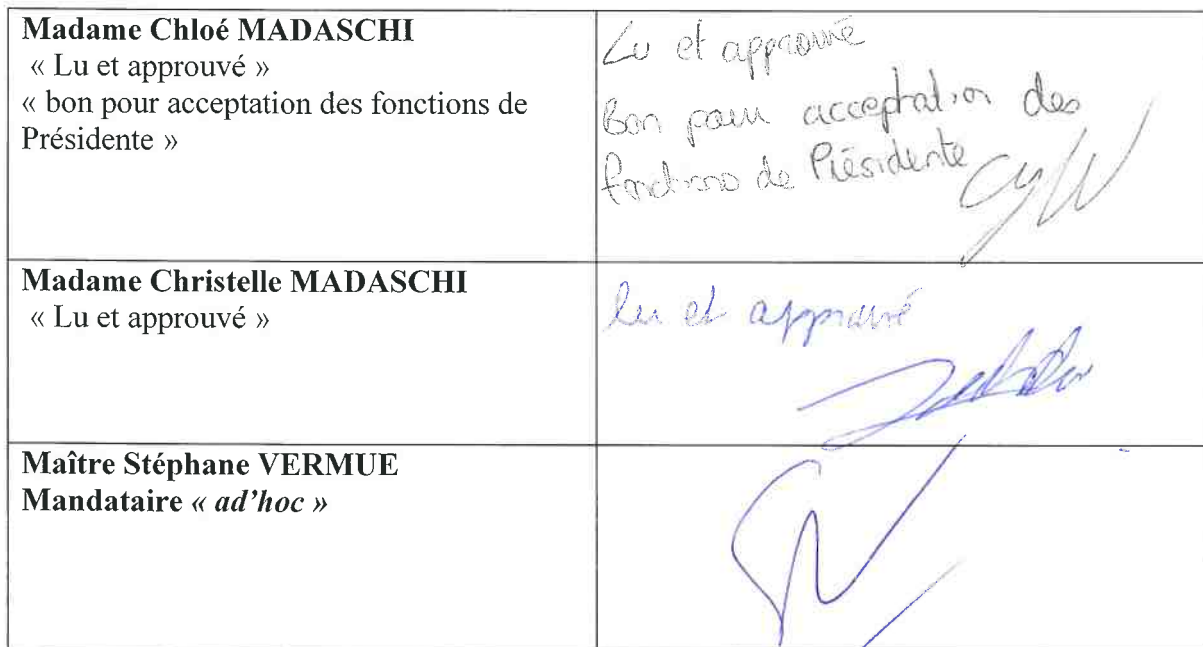 Madame Chloé MADASCHI
« Lu et approuvé »
« bon pour acceptation des fonctions de
Présidente »
Lu et approuvé
Bon pour acceptation des
fonctions de Présidente
Madame Christelle MADASCHI
« Lu et approuvé »
lu et approuvé
Maître Stéphane VERMUE
Mandataire « ad'hoc »